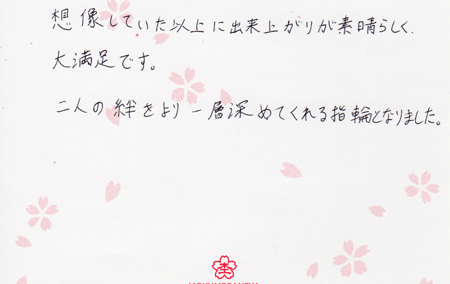 想像していた以上に出来上がりが素晴らしく、
大満足です。
二人の絆をより一層深めてくれる指輪となりました。